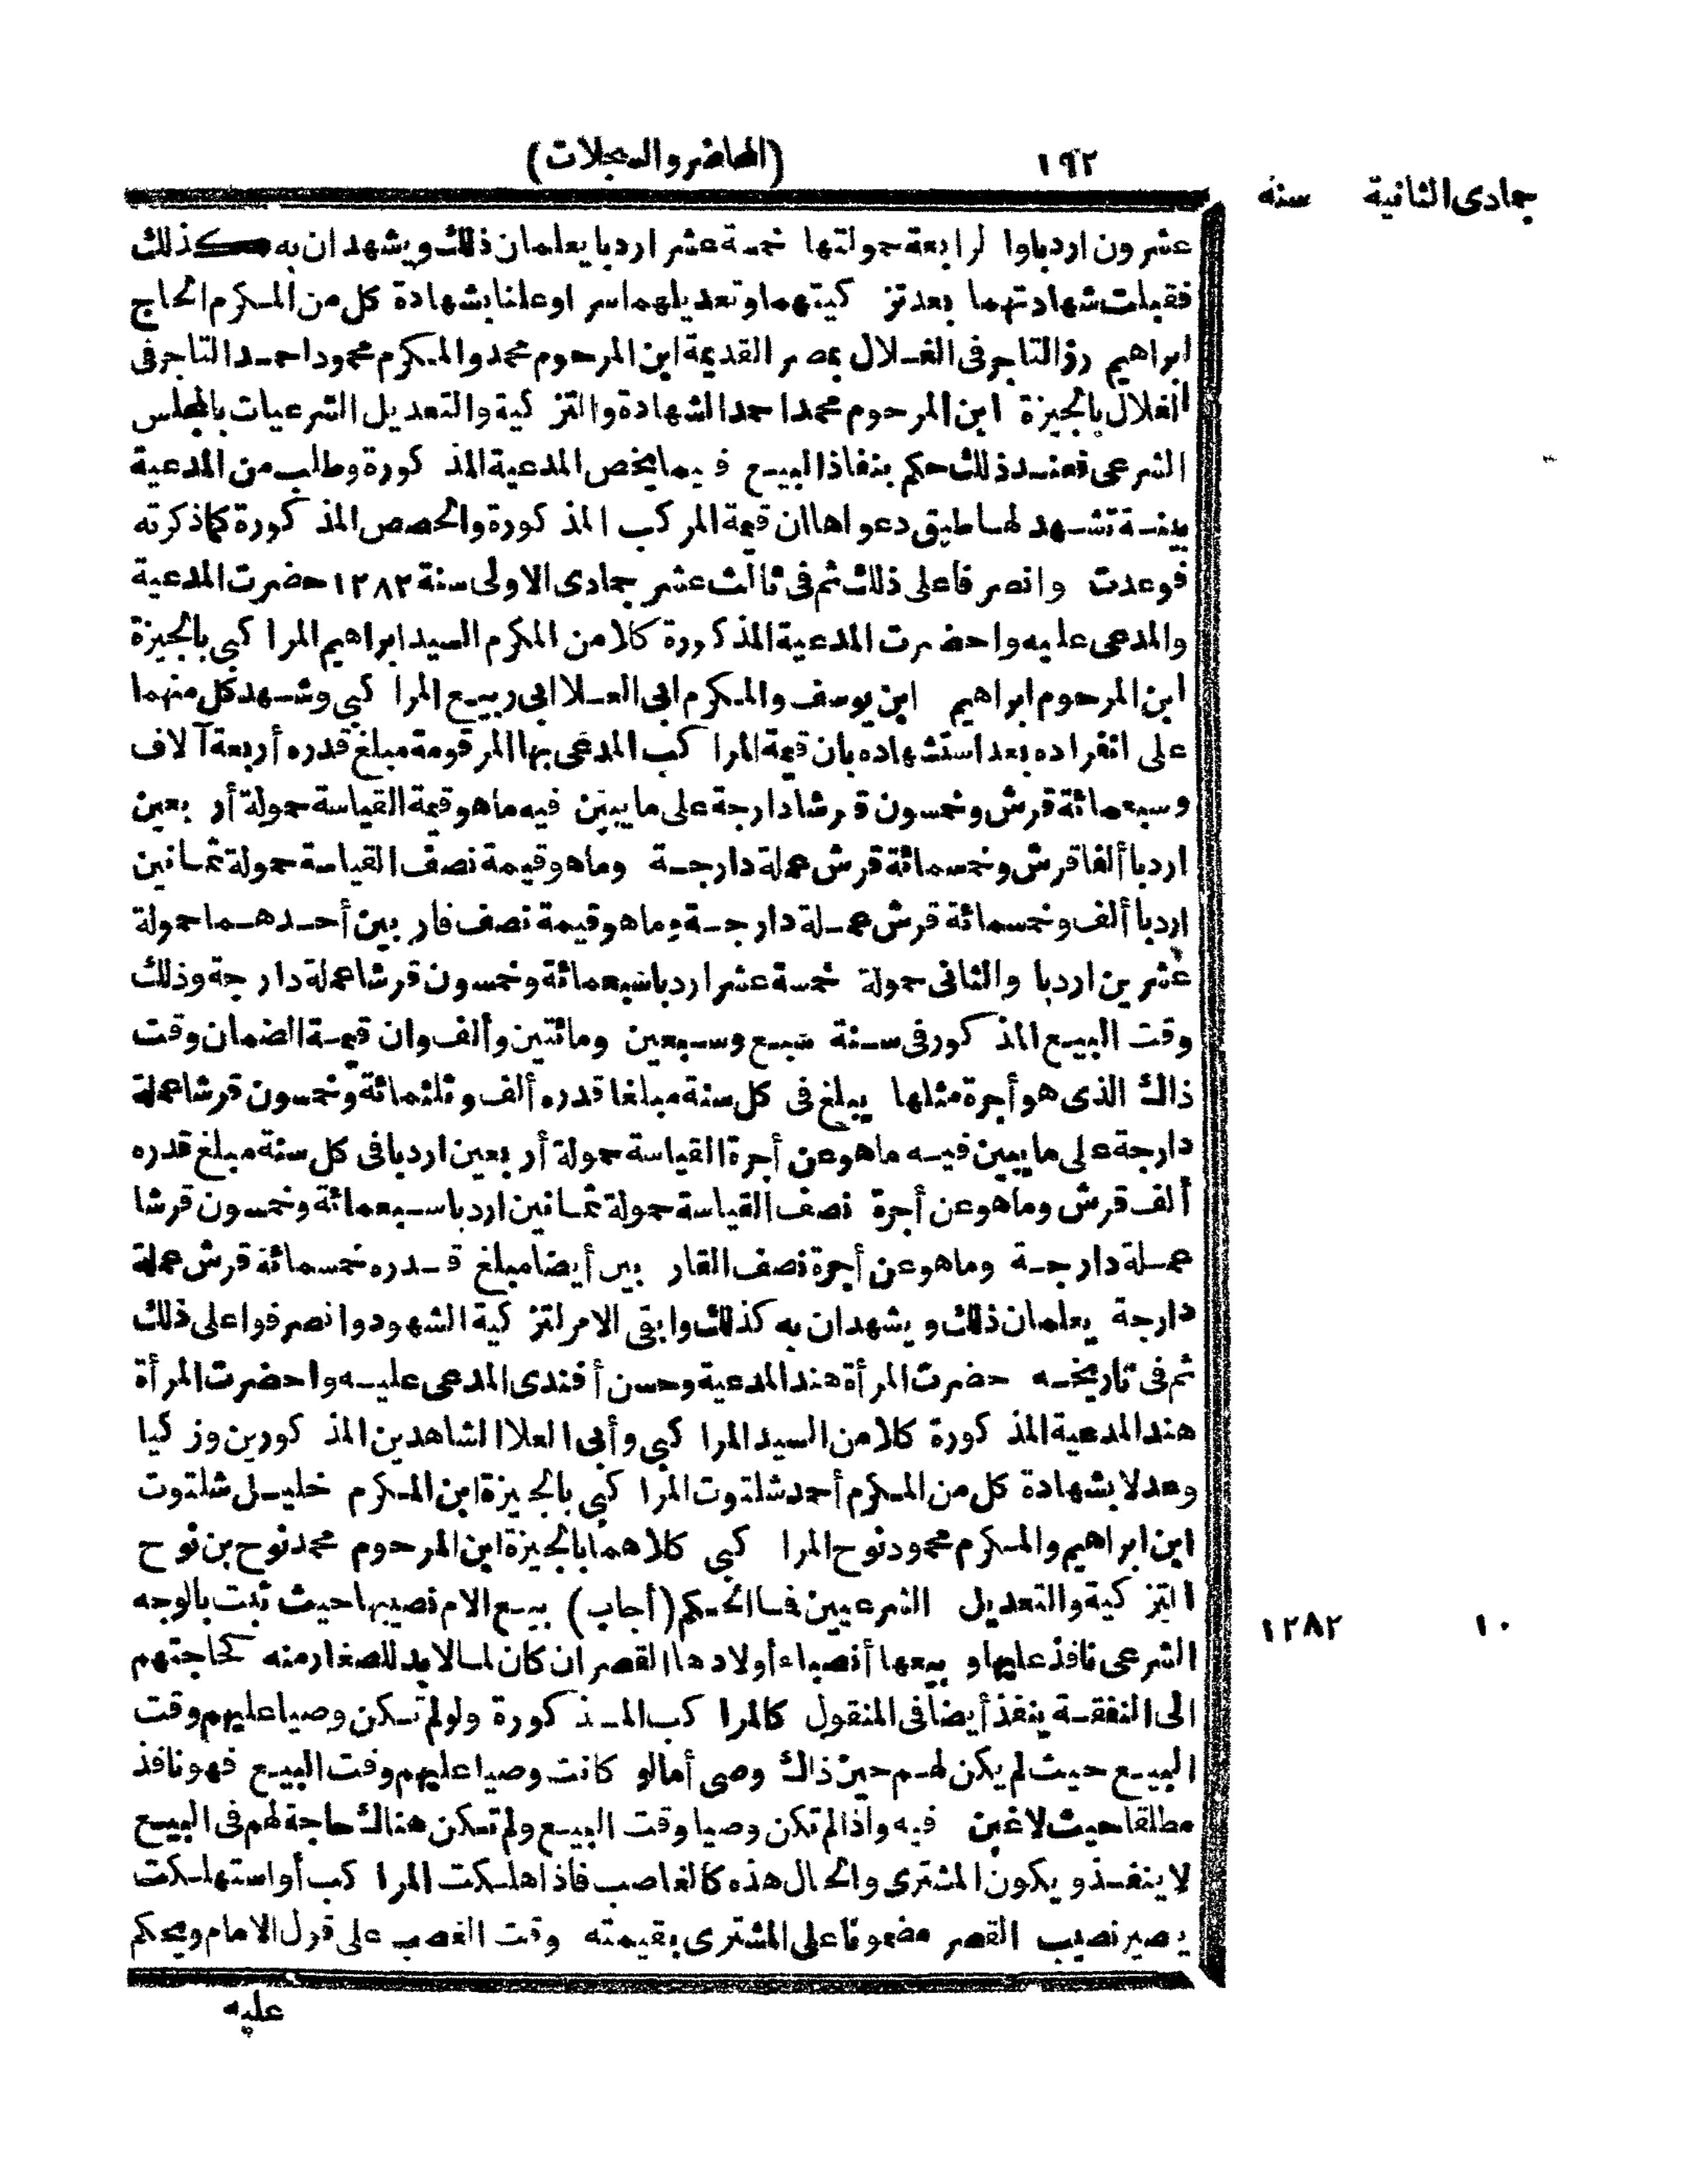 ١٩٢ (المحاضر والسجلات)
جمادى الثانية سنة
عشرون اردبا والرابعة حمولتها خمسة عشر اردبا يعلمان ذلك ويشهدان به كذلك
فقبلت شهادتهما بعد تزكيتهما وتعديلهما سرا وعلنا بشهادة كل من المكرم الحاج
ابراهيم رؤ التاجر فى الغلال بمصر القديمة ابن المرحوم محمد والمكرم محمود احمد التاجر فى
الغلال بالجيزة ابن المرحوم محمد احمد الشهادة والتزكية والتعديل الشرعيات بالمجلس
الشرعى فعند ذلك حكم بنفاذ البيع فيما يخص المدعية المذكورة وطلب من المدعية
بينة تشهد لها طبق دعواها ان قيمة المركب المذكورة والحصص المذكورة كما ذكرته
فوعدت وانصرفا على ذلك ثم فى ثالث عشر جمادى الاولى سنة ١٢٨٢ حضرت المدعية
والمدعى عليه واحضرت المدعية المذكورة كلا من المكرم السيد ابراهيم المراكبى بالجيزة
ابن المرحوم ابراهيم ابن يوسف والمكرم ابى العلا ابى ربيع المراكبى وشهد كل منهما
على انفراده بعد استشهاده بان قيمة المراكب المدعى بها المرقومة مبلغ قدره أربعة آلاف
وسبعمائة قرش وخمسون قرشا دارجة على ما يبين فيه ما هو قيمة القياسة حمولة أربعين
اردبا ألفا قرش وخمسمائة قرش عملة دارجة وما هو قيمة نصف القياسة حمولة ثمانين
اردبا ألف وخمسمائة قرش عملة دارجة وما هو قيمة نصف قاربين أحدهما حمولة
عشرين اردبا والثانى حمولة خمسة عشر اردبا سبعمائة وخمسون قرشا عملة دارجة وذلك
وقت البيع المذكور فى سنة سبع وسبعين ومائتين وألف وان قيمة الضمان وقت
ذاك الذى هو أجرة مثلها يبلغ فى كل سنة مبلغا قدره ألف وثلثمائة وخمسون قرشا عملة
دارجة على ما يبين فيه ما هو عن أجرة القياسة حمولة أربعين اردبا فى كل سنة مبلغ قدره
ألف قرش وما هو عن أجرة نصف القياسة حمولة ثمانين اردبا سبعمائة وخمسون قرشا
عملة دارجة وما هو عن أجرة نصف القاربين أيضا مبلغ قدره خمسمائة قرش عملة
دارجة يعلمان ذلك ويشهدان به كذلك وابقى الامر لتزكية الشهود وانصرفوا على ذلك
ثم فى تاريخه حضرت المرأة هند المدعية وحسن أفندى المدعى عليه واحضرت المرأة
هند المدعية المذكورة كلا من السيد المراكبى وأبى العلا الشاهدين المذكورين وزكيا
وعدلا بشهادة كل من المكرم أحمد شلتوت المراكبى بالجيزة ابن المكرم خليل شلتوت
ابن ابراهيم والمكرم محمود نوح المراكبى كلاهما بالجيزة ابن المرحوم محمد نوح بن نوح
التزكية والتعديل الشرعيين فما الحكم (أجاب) بيع الام نصيبها حيث ثبت بالوجه
الشرعى نافذ عليها وبيعها أنصباء أولادها القصر ان كان لما لا بد للصغار منه كحاجتهم
١٠ ١٢٨٢
الى النفقة ينفذ أيضا فى المنقول كالمراكب المذكورة ولو لم تكن وصيا عليهم وقت
البيع حيث لم يكن لهم حين ذاك وصى أما لو كانت وصيا عليهم وقت البيع فهو نافذ
مطلقا حيث لا غبن فيه واذا لم تكن وصيا وقت البيع ولم تكن هناك حاجة لهم فى البيع
لا ينفذ ويكون المشترى والحال هذه كالغاصب فاذا هلكت المراكب أو استهلكت
يصير نصيب القصر مضمونا على المشترى بقيمته وقت الغصب على قول الامام ويحكم
عليه